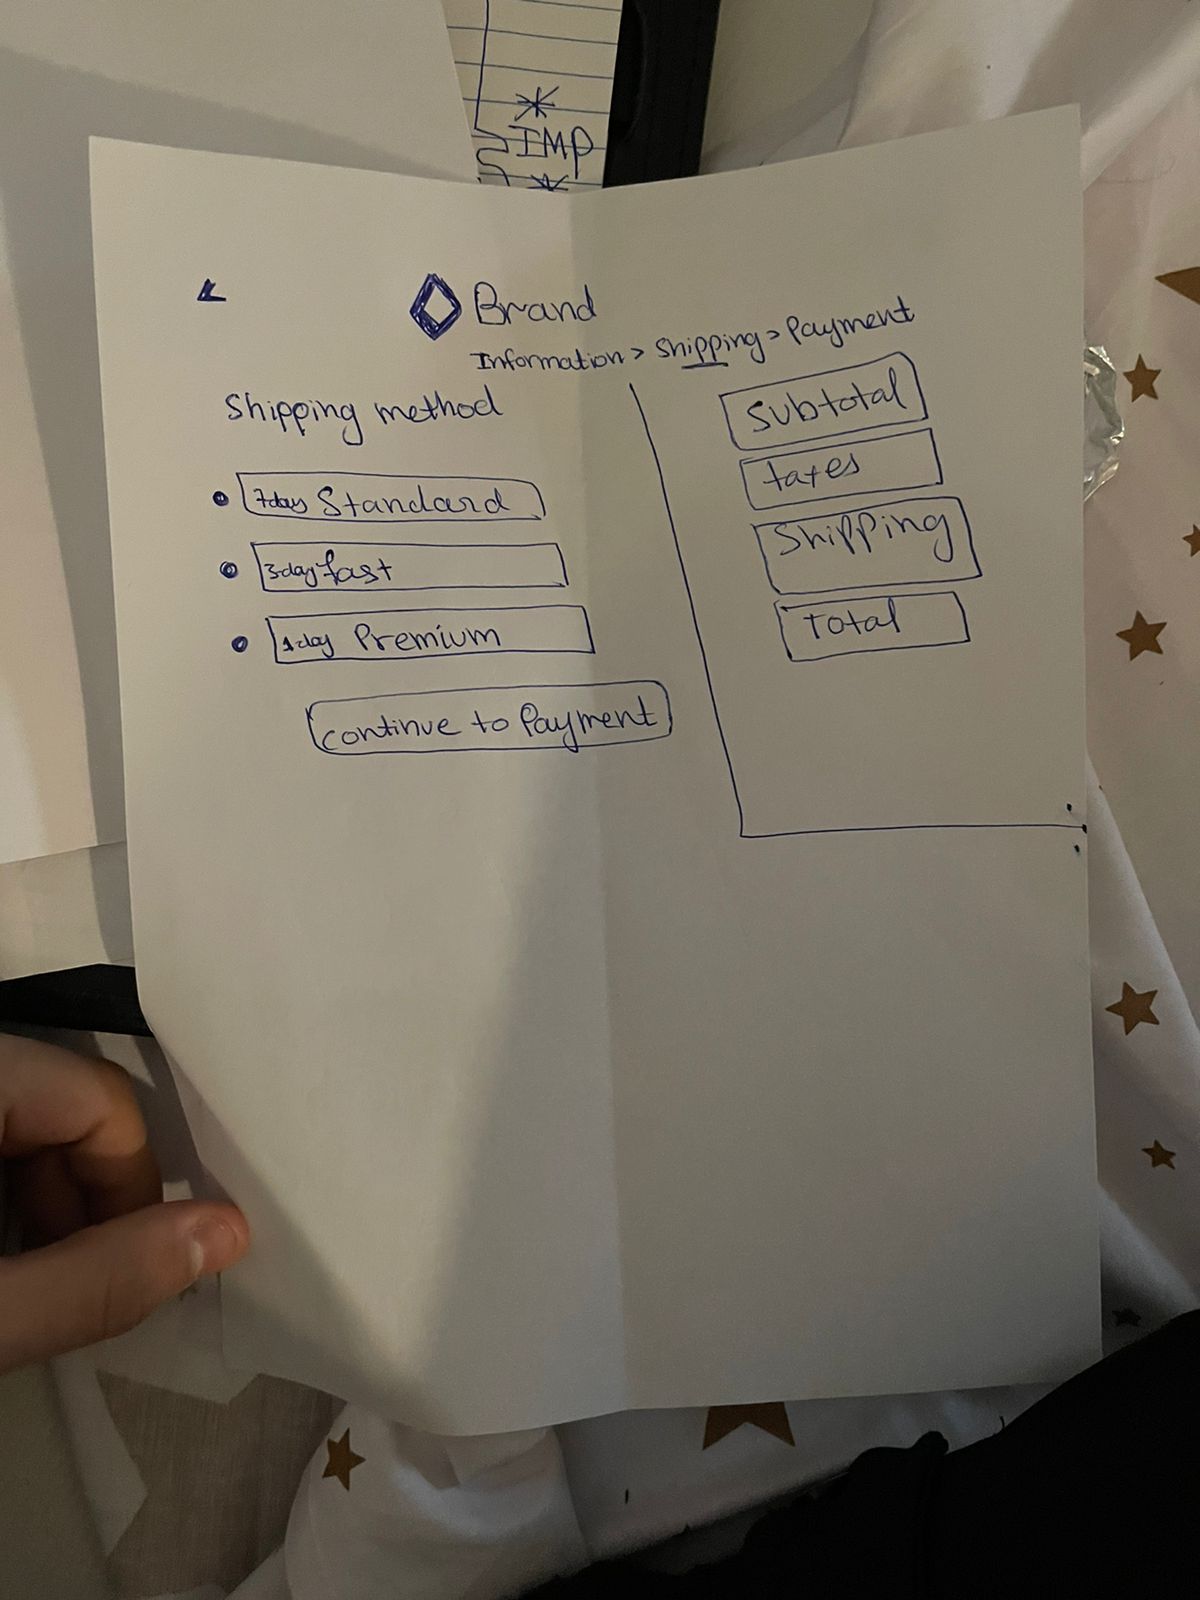 IMP
Brand
Information > Shipping > Payment
Shipping method
7day Standard
3-day fast
1-day Premium
Continue to Payment
Subtotal
taxes
Shipping
Total